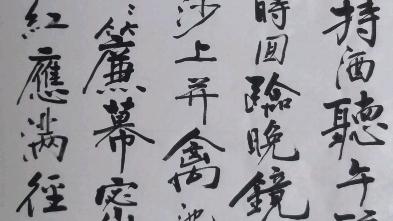 持酒聽午
時回臨晚鏡
沙上并禽池
簾幕密
紅應滿徑